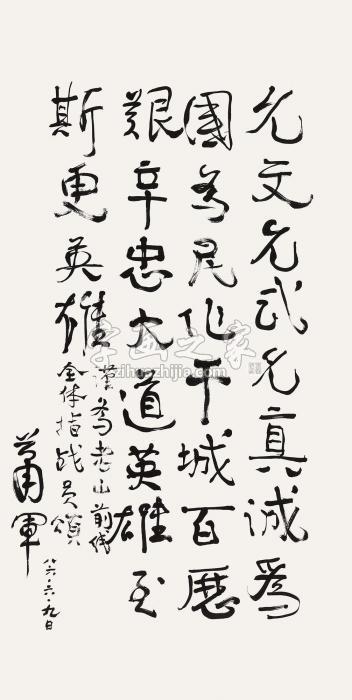 允文允武允真誠為
國為民作干城百歷
艱辛忠大道英雄至
斯更英雄
謹為老山前线
全体指战员頌
蕭軍
八六·六·九日
字画之家
zihuazhijia.com